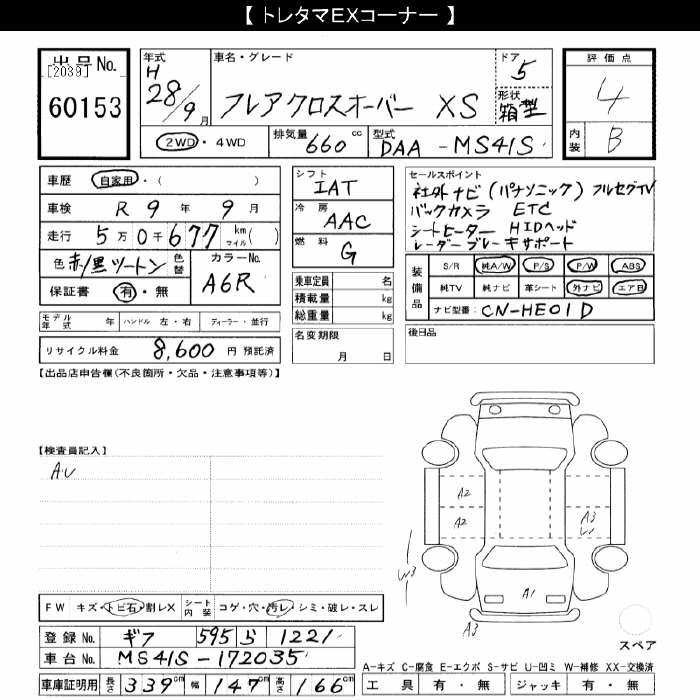 【 トレタマEXコーナー 】
出品No.
[2039]
60153
年式
H
28/9月
車名・グレード
フレアクロスオーバー XS
ドア
5
形状
箱型
評価点
4
内装
B
2WD・4WD
排気量 660 cc
型式
DAA-MS41S
車歴 自家用・( )
車検 R 9 年 9 月
走行 5万0千677 km マイル ( )
色 赤/黒ツートン 色替
カラーNo.
A6R
保証書 有・無
シフト
IAT
冷房
AAC
燃料
G
乗車定員 名
積載量 kg
総重量 kg
名変期限
月 日
セールスポイント
社外ナビ(パナソニック) フルセグTV
バックカメラ ETC
シートヒーター HIDヘッド
レーダーブレーキサポート
装備品
S/R 純A/W P/S P/W ABS
純TV 純ナビ 革シート 外ナビ エアB
ナビ型番: CN-HE01D
モデル年式 年 ハンドル 左・右 ディーラー・並行
後日品
リサイクル料金 8,600 円 預託済
【出品店申告欄(不良箇所・欠品・注意事項等)】
【検査員記入】
AU
A2
A2
A3
W3
A1
A3
FW キズ・トビ石・割レX
シート内装 コゲ・穴・汚レ・シミ・破レ・スレ
スペア
登録No. ギフ 595 ら 1221
車台No. MS41S-172035
A-キズ C-腐食 E-エクボ S-サビ U-凹ミ W-補修 XX-交換済
車庫証明用 長さ 339cm 幅 147cm 高さ 166cm
工具 有・無 ジャッキ 有・無